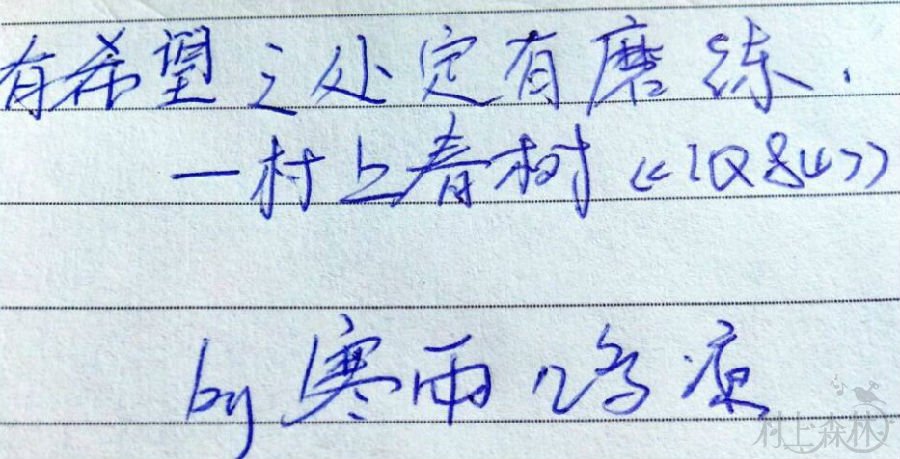 有希望之处定有磨练.
—村上春树《1Q84》
by 寒雨路凉
村上森林